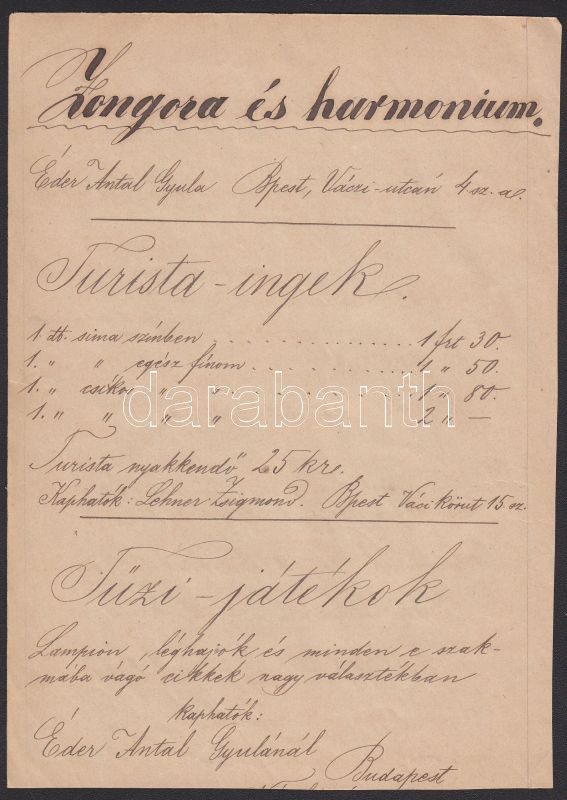 Zongora és harmonium.
Éder Antal Gyula Bpest, Váczi-utczán 4 sz. a.
Turista-ingek.
1. db. sima színben . . . . . . . . . . . 1 frt 30.
1. „ „ egész finom . . . . . . . . . 1 „ 50.
1. „ csíkos „ „ . . . . . . . . . 1 „ 80.
1. „ „ „ „ 2 „ —
darabanth
Turista nyakkendő 25 kr.
Kaphatók: Lehner Zsigmond. Bpest Váci körut 15. sz.
Tüzi-játékok
Lampion, léghajók és minden e szak-
mába vágó cikkek nagy választékban
kaphatók:
Éder Antal Gyulánál
Budapest